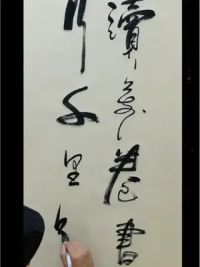 讀万卷書
行千里